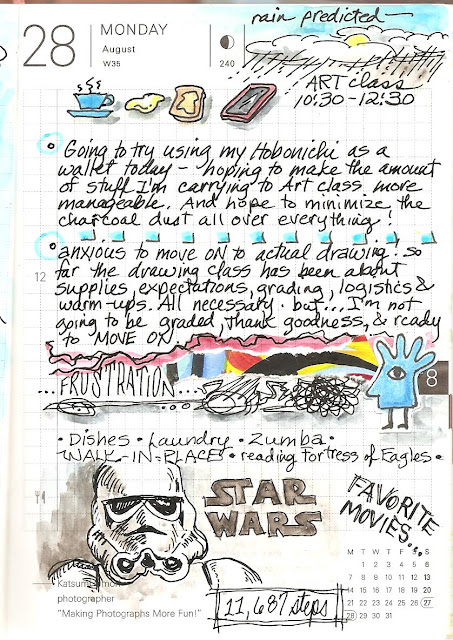 28
MONDAY
August
W35
240
rain predicted—
ART class
10:30-12:30
Going to try using my Hobonichi as a
wallet today -- hoping to make the amount
of stuff I'm carrying to Art class more
manageable. And hope to minimize the
charcoal dust all over everything!
anxious to move on to actual drawing! so
far the drawing class has been about
supplies, expectations, grading, logistics &
warm-ups. All necessary. but... I'm not
going to be graded, thank goodness, & ready
to MOVE ON
12
...FRUSTRATION...
8
• Dishes • Laundry • Zumba •
WALK-IN-PLACE • reading Fortress of Eagles •
STAR
WARS
FAVORITE
MOVIES...
M T W T F S S
1 2 3 4 5 6
7 8 9 10 11 12 13
14 15 16 17 18 19 20
21 22 23 24 25 26 27
28 29 30 31
photographer
"Making Photographs More Fun!"
11,687 steps